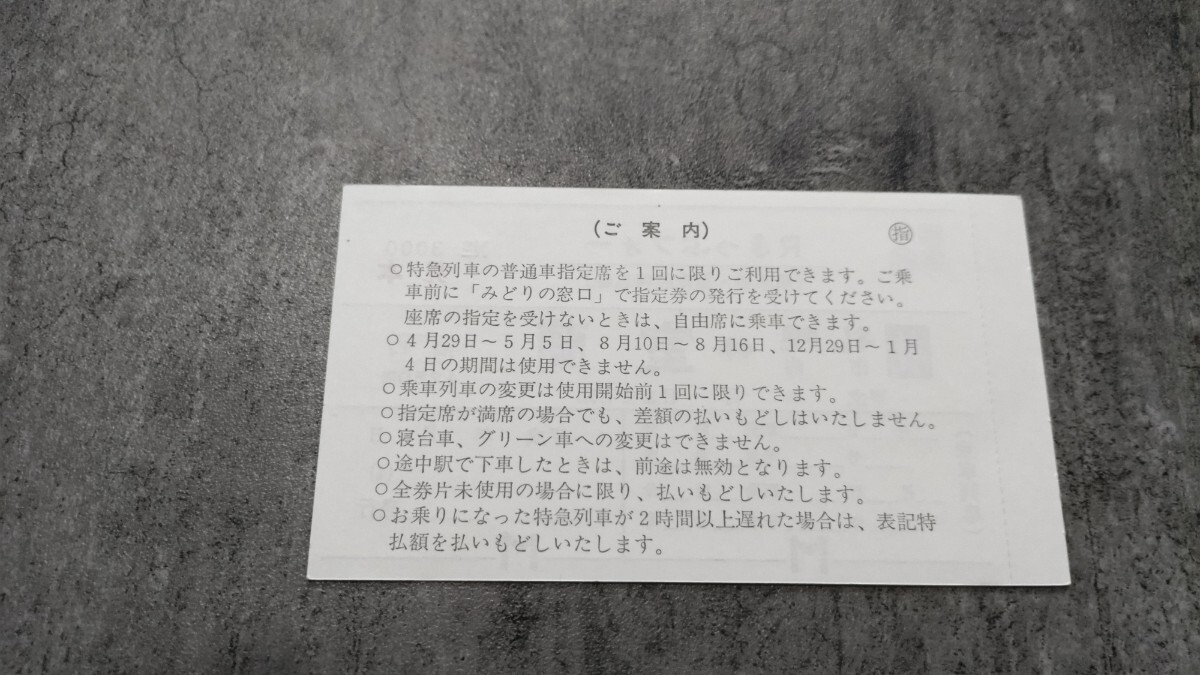 (ご案内)
指
○特急列車の普通車指定席を1回に限りご利用できます。ご乗
車前に「みどりの窓口」で指定券の発行を受けてください。
座席の指定を受けないときは、自由席に乗車できます。
○4月29日~5月5日、8月10日~8月16日、12月29日~1月
4日の期間は使用できません。
○乗車列車の変更は使用開始前1回に限りできます。
○指定席が満席の場合でも、差額の払いもどしはいたしません。
○寝台車、グリーン車への変更はできません。
○途中駅で下車したときは、前途は無効となります。
○全券片未使用の場合に限り、払いもどしいたします。
○お乗りになった特急列車が2時間以上遅れた場合は、表記特
払額を払いもどしいたします。